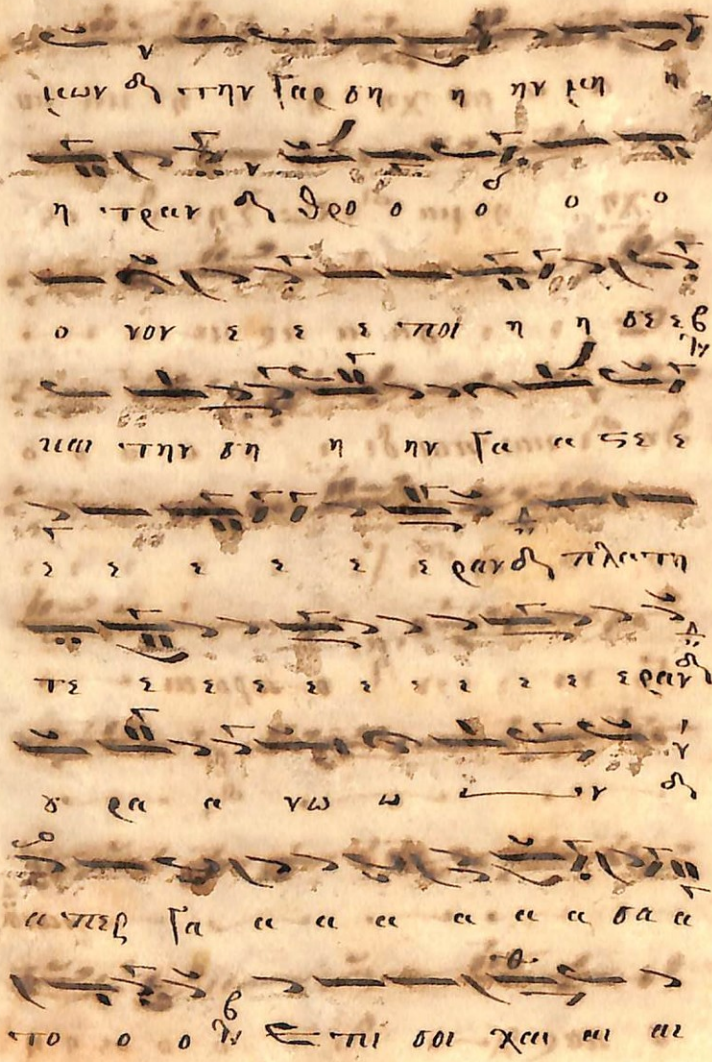 μων την γαρ ση η ην μη η
η τραν θρο ο ο ο ο
ο νον ε ε ε ποι η η σε ε
και την ση η ην γα α στε ε
ε ε ε ε ε ε ραν πλατη
τε ε ε ε ε ε ε ε ε ε ραν
ου ρα α νω ω ν
α περ γα α α α α α α σα α
το ο ο Ε πι σοι χαι αι αι